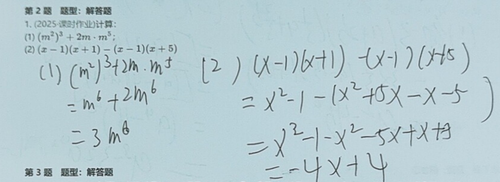 第 2 题 题型：解答题
1. (2025·课时作业)计算：
(1) (m²)³ + 2m · m⁵；
(2) (x−1)(x+1) − (x−1)(x+5)
(1) (m²)³+2m·m⁵
=m⁶+2m⁶
=3m⁶
(2) (x-1)(x+1) -(x-1)(x+5)
=x²-1-(x²+5x-x-5)
=x²-1-x²-5x+x+5
=-4x+4
第 3 题 题型：解答题